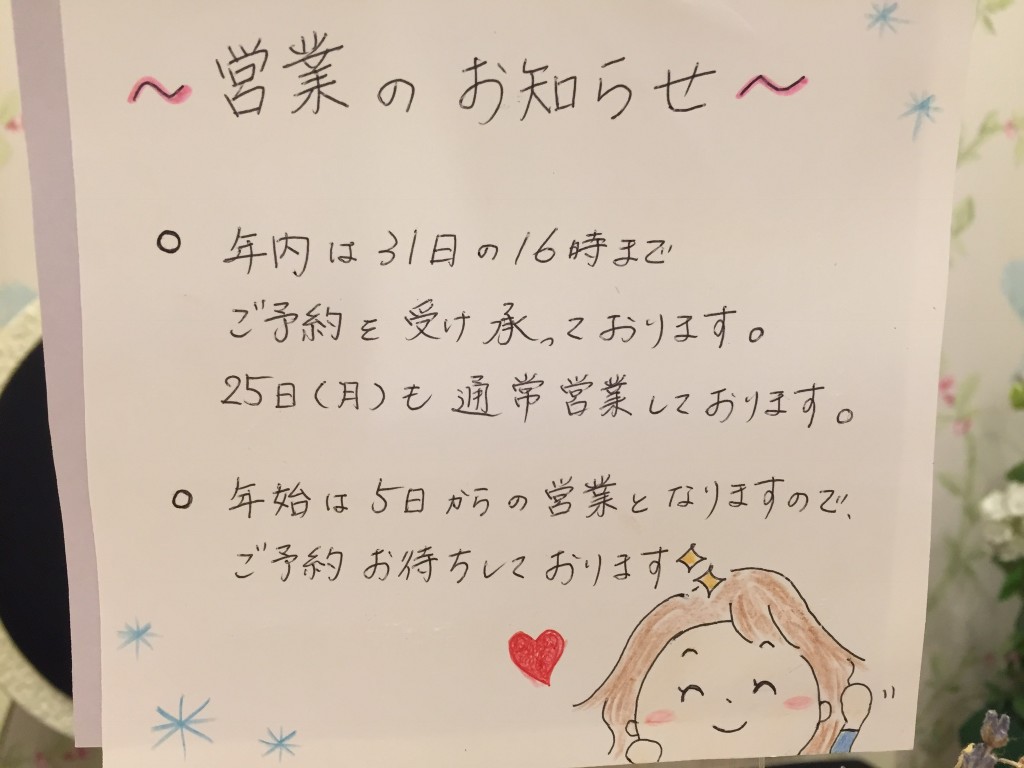 ～営業のお知らせ～
○ 年内は31日の16時まで
ご予約を受け承っております。
25日(月)も通常営業しております。
○ 年始は5日からの営業となりますので、
ご予約お待ちしております